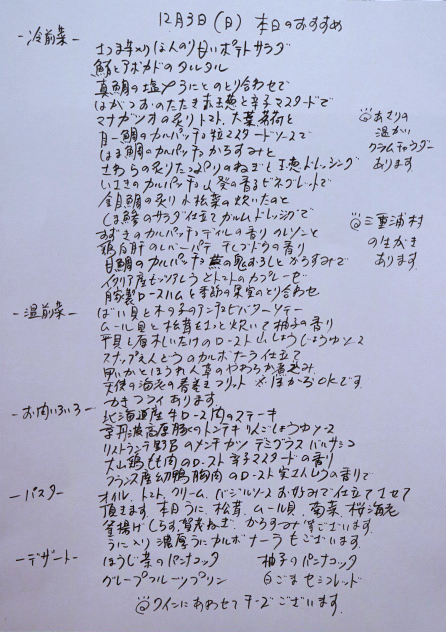 12月3日(日) 本日のおすすめ
-冷前菜-
さつま芋入り ほんのり甘いポテトサラダ
鮪とアボカドのタルタル
真鯛の塩 とのとり合わせで
はがつおのたたき 玉葱と辛子マスタードで
マナガツオの炙り トマト、大葉、茗荷と
鯛のカルパッチョ 粒マスタードソースで
鯛のカルパッチョ からすみと
さわらの炙り たっぷりのねぎと玉葱ドレッシング
いさきのカルパッチョ 山葵の香るビネグレットで
金目鯛の炙り 小松菜の炊いたのと
しま鯵のサラダ仕立て ガルムドレッシングで
すずきのカルパッチョ ディルの香り
鶏白肝のレバーパテ 干しブドウの香り
目鯛のカルパッチョ 蕪の鬼おろしとからすみで
イタリア産モッツァレラとトマトのカプレーゼ
豚製ロースハムと季節の果実のとり合わせ
@あさりの
温かい
クラムチャウダー
あります
@三重浦村
の生がき
あります
-温前菜-
ばい貝と木の子のアンチョビバターソテー
ムール貝と松茸をさっと炊いて 柚子の香り
平貝と石木しいたけのロースト 山しょうじょうゆソース
スナップえんどうのカルボナーラ仕立て
甲いかとほうれん草のやわらか煮込み
天使の海老の春巻きフリット ※1本からOKです
かきフライあります
-お肉いろいろ-
北海道産牛ロース肉のステーキ
京丹波高原豚のトンテキ りんごしょうゆソース
リストランテ野呂のメンチカツ デミグラスバルサミコ
大山鶏もも肉のロースト 辛子マスタードの香り
フランス産幼鴨胸肉のロースト 実さんしょうの香りで
-パスタ-
オイル、トマト、クリーム、バジルソース お好みで仕立てさせて
頂きます 本日うに、松茸、ムール貝、菊菜、桜海老
釜揚げしらす、賀茂ねぎ、からすみがございます
うに入り 濃厚うにカルボナーラもございます
-デザート-
ほうじ茶のパンナコッタ 柚子のパンナコッタ
グレープフルーツプリン 白ごまセミフレッド
@ワインにあわせてチーズございます